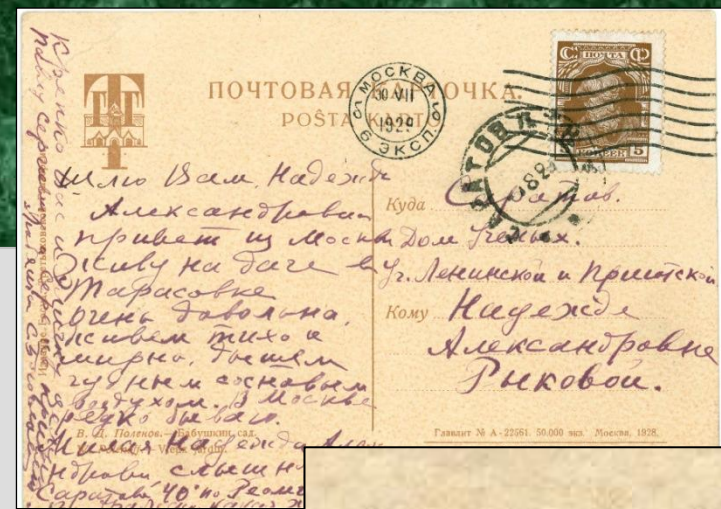 ПОЧТОВАЯ КАРТОЧКА.
POŠTA KARTO
МОСКВА
30 VII
1929
6 ЭКСП.
ПОЧТА
5
КОПЕЕК
САРАТОВ
Шлю Вам, Надежда
Александровна
привет из Москвы
Живу на даче в
Тарасовке
очень довольна,
живем тихо и
мирно, дышем
чудным сосновым
воздухом. В Москве
редко бываю.
Милая Надежда Алек
андровн слышно
Саратове 40° по Реом
Куда Саратов.
Дом Ученых.
Уг. Ленинской и Приютской
Кому Надежде
Александровне
Рыковой.
В. Д. Поленов.—Бабушкин сад.
Главлит № А-22561. 50.000 экз. Москва, 1928.
Крепко Вас и
Павлу Сергеев